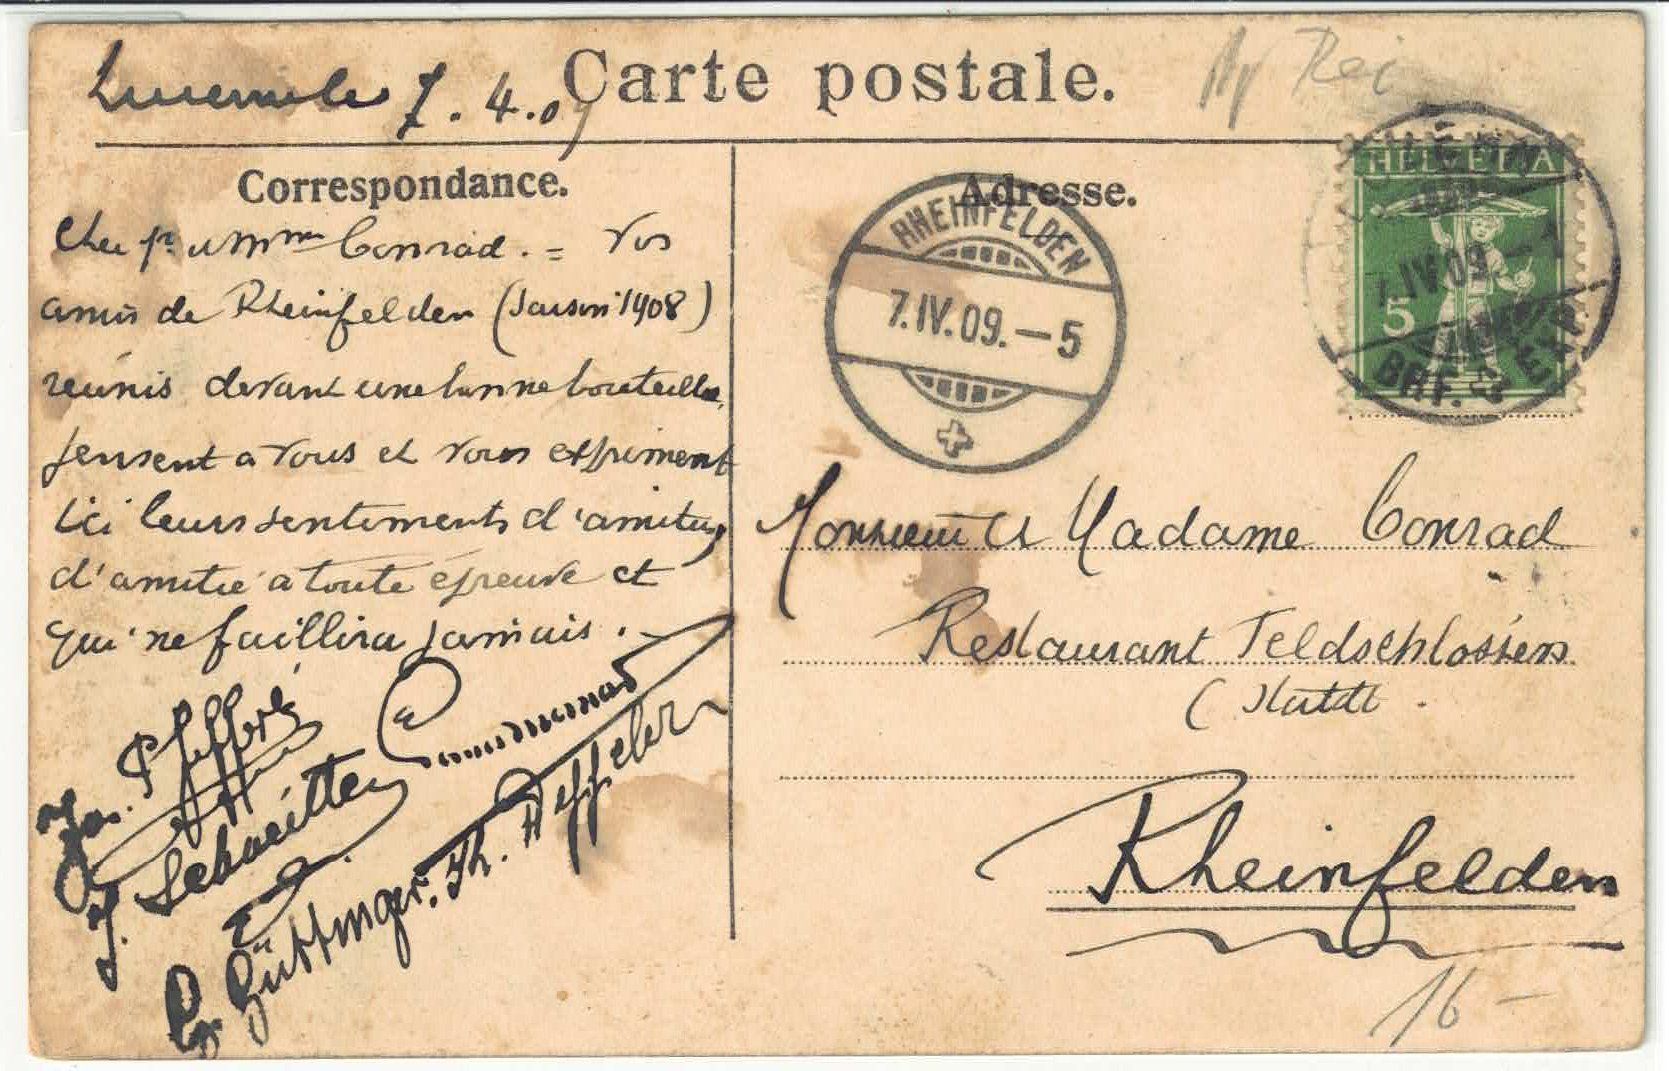 7.4.09
Carte postale.
Rei
Correspondance.
Adresse.
Cher Mr. et Mme Conrad. = Vos
amis de Rheinfelden (Saison 1908)
réunis devant une bonne bouteille,
pensent a vous et vous expriment
ici leurs sentiments d'amitié,
d'amitié a toute épreuve et
qui ne faillira jamais.
Jos. Pfeffré
J. Schneitter
G. Güttinger. Th. Haffeler
RHEINFELDEN
7.IV.09.–5
HELVETIA
5
7.IV.09
BRF. EXP.
Monsieur et Madame Conrad
Restaurant Feldschlössen
(Stadt.
Rheinfelden
16 –